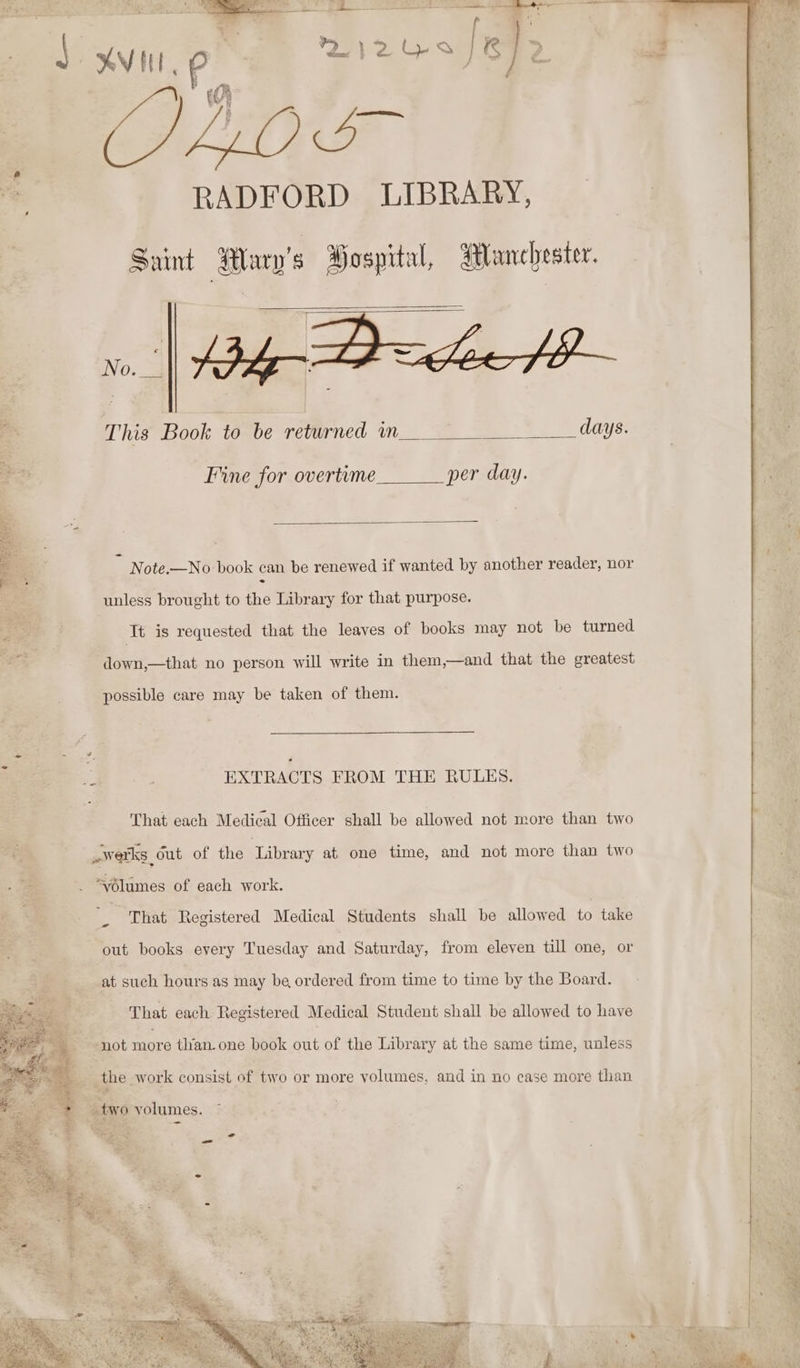 XVIII. p
21240/R/2
RADFORD LIBRARY,
Saint Mary's Hospital, Manchester.
No.
This Book to be returned in days.
Fine for overtime per day.
Note.—No book can be renewed if wanted by another reader, nor
unless brought to the Library for that purpose.
It is requested that the leaves of books may not be turned
down,—that no person will write in them,—and that the greatest
possible care may be taken of them.
EXTRACTS FROM THE RULES.
That each Medical Officer shall be allowed not more than two
works out of the Library at one time, and not more than two
volumes of each work.
That Registered Medical Students shall be allowed to take
out books every Tuesday and Saturday, from eleven till one, or
at such hours as may be ordered from time to time by the Board.
That each Registered Medical Student shall be allowed to have
not more than one book out of the Library at the same time, unless
the work consist of two or more volumes, and in no case more than
two volumes.